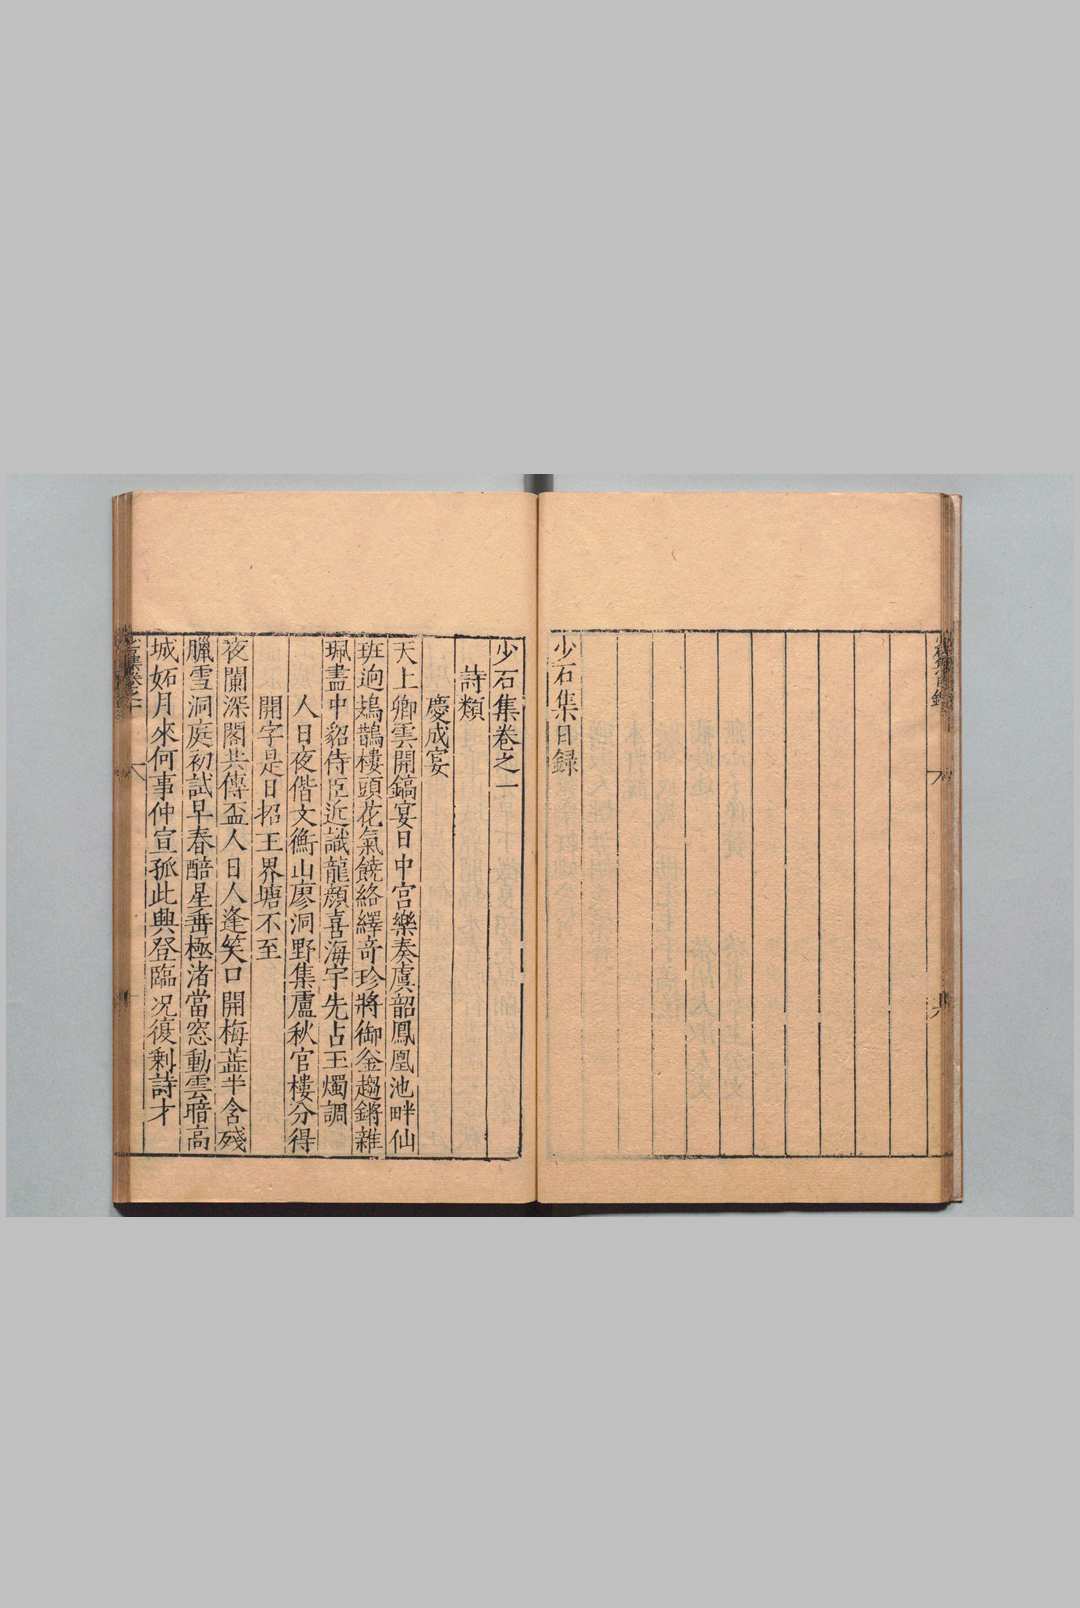 少石集目録
少石集卷之一
詩類
慶成宴
天上卿雲開鎬宴日中宮樂奏虞韶鳳凰池畔仙
班逈鳷鵲樓頭花氣饒絡繹奇珍將御金趨鏘雜
珮盡中貂侍臣近識龍顔喜海宇先占玉燭調
人日夜偕文衡山廖洞野集盧秋官樓分得
開字是日招王界塘不至
夜闌深閣共傳盃人日人逢笑口開梅蕋半含殘
臘雪洞庭初試早春醅星垂極渚當窓動雲暗高
城妬月來何事仲宣孤此興登臨况復剩詩才